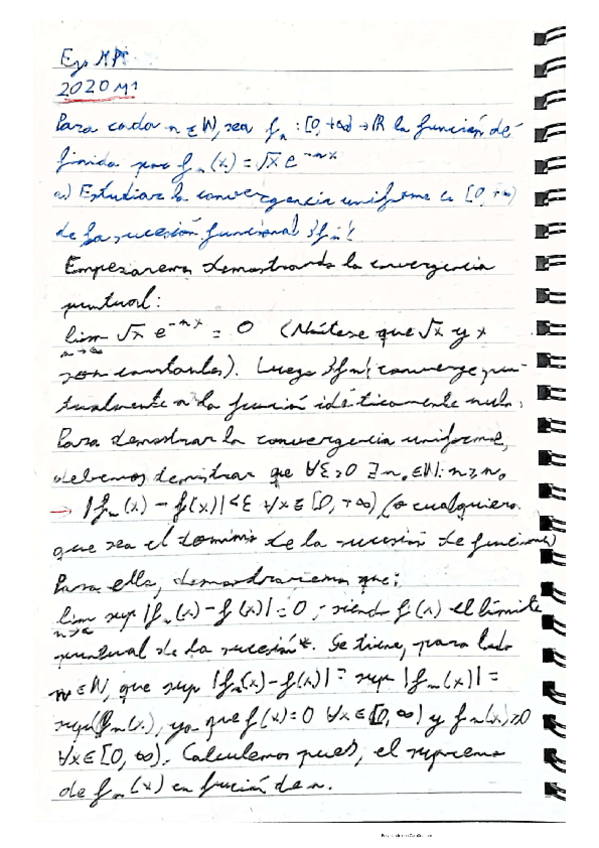 Ej. MPI
2020 M1
Para cada n ∈ ℕ, sea fₙ : [0, +∞) → ℝ la función de-
finida por fₙ(x) = √x e^(-nx)
a) Estudiar la convergencia uniforme en [0, +∞)
de la sucesión funcional {fₙ}
Empezaremos demostrando la convergencia
puntual:
lim n→∞ √x e^(-nx) = 0 (Nótese que √x y x
son constantes). Luego {fₙ} converge pun-
tualmente a la función idénticamente nula.
Para demostrar la convergencia uniforme,
debemos demostrar que ∀ε>0 ∃ n₀ ∈ ℕ: n ≥ n₀
→ |fₙ(x) - f(x)| < ε ∀x ∈ [0, +∞) (o cualquiera
que sea el dominio de la sucesión de funciones)
Para ello, demostraremos que:
lim n→∞ sup |fₙ(x) - f(x)| = 0, siendo f(x) el límite
puntual de la sucesión*. Se tiene, para cada
n ∈ ℕ, que sup |fₙ(x) - f(x)| = sup |fₙ(x)| =
sup fₙ(x), ya que f(x) = 0 ∀x ∈ [0, ∞) y fₙ(x) ≥ 0
∀x ∈ [0, ∞). Calculemos pues, el supremo
de fₙ(x) en función de n.